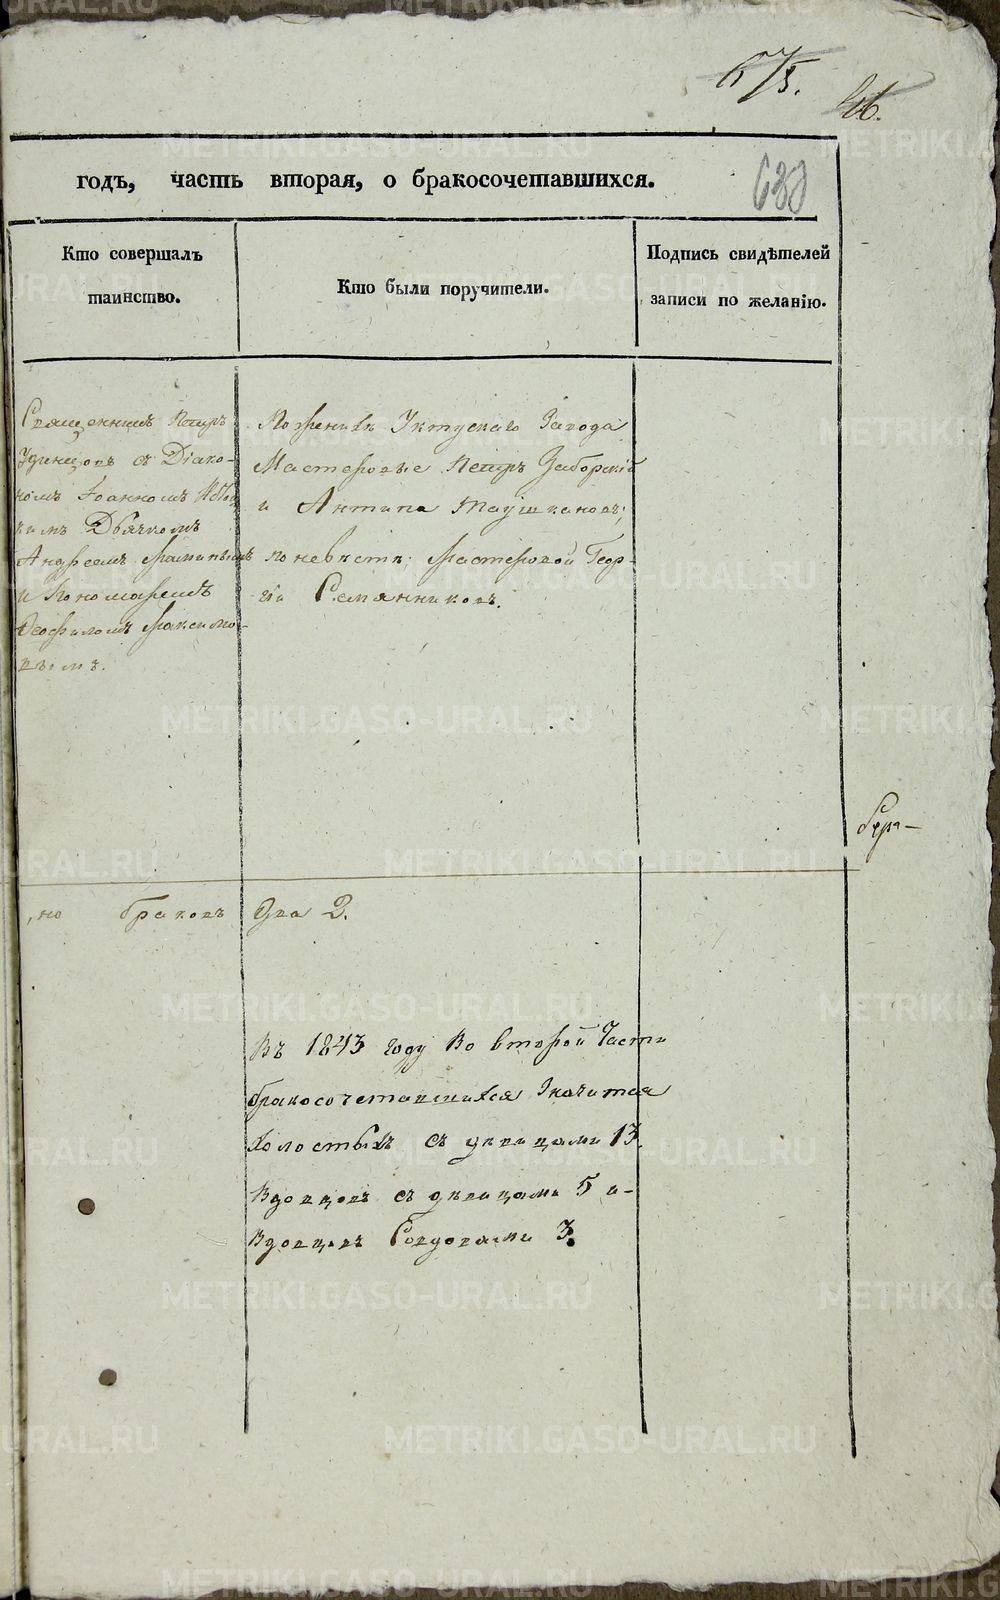 675.
46.
годъ, часть вторая, о бракосочетавшихся.
639
Кто совершалъ
таинство.
Кто были поручители.
Подпись свидѣтелей
записи по желанію.
Священникъ Петръ
Удинцовъ съ Діако-
номъ Іоанномъ
кимъ Дьячкомъ
Андреемъ
и Пономаремъ
Феофиломъ Максимо-
вымъ.
По женихѣ Уктускаго Завода
Мастеровые Петръ Заборскій
и Антипа Таушкановъ;
по невѣстѣ: Мастеровой Геор-
гій Семянниковъ.
Бра-
,но браковъ два 2.
Въ 1843 году Во второй Части
бракосочетавшихся Значится
Холостыхъ съ дѣвицами 13.
Вдовцовъ съ дѣвицами 5 и-
Вдовцовъ Совдовами 3.
METRIKI.GASO-URAL.RU